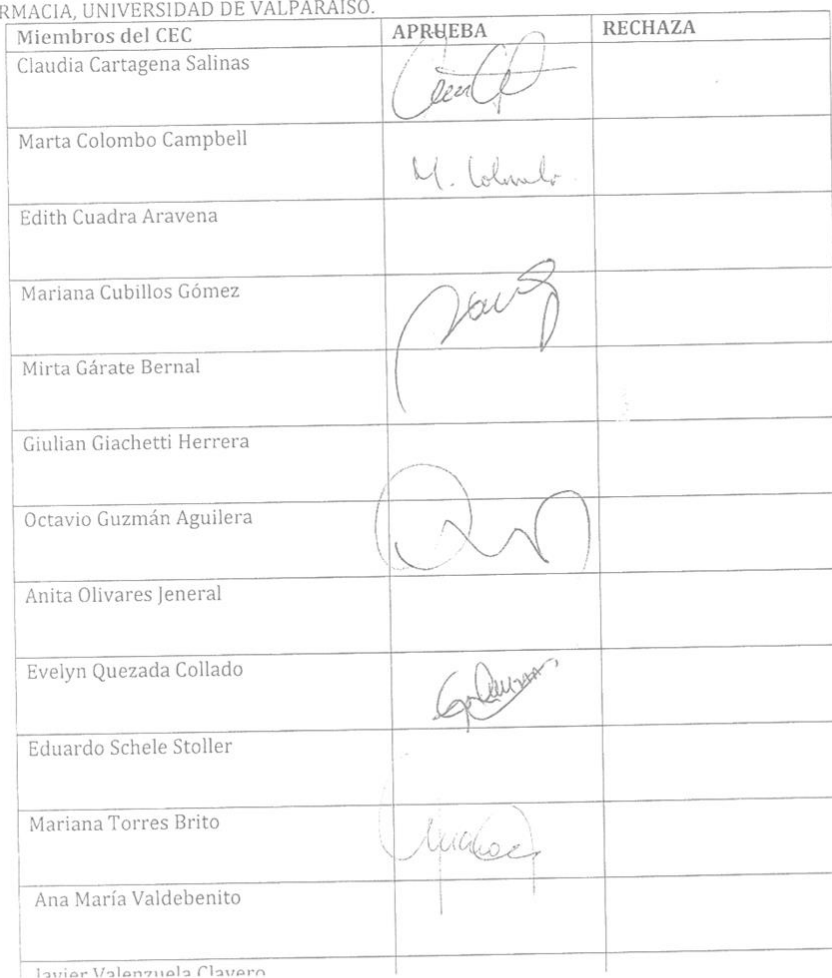 RMACIA, UNIVERSIDAD DE VALPARAISO.
Miembros del CEC APRUEBA RECHAZA
Claudia Cartagena Salinas
Marta Colombo Campbell M. Colombo
Edith Cuadra Aravena
Mariana Cubillos Gómez
Mirta Gárate Bernal
Giulian Giachetti Herrera
Octavio Guzmán Aguilera
Anita Olivares Jeneral
Evelyn Quezada Collado
Eduardo Schele Stoller
Mariana Torres Brito
Ana María Valdebenito
Javier Valenzuela Clavero